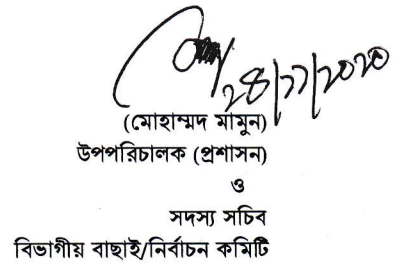 ২৪/১১/২০২০
(মোহাম্মদ মামুন)
উপপরিচালক (প্রশাসন)
ও
সদস্য সচিব
বিভাগীয় বাছাই/নির্বাচন কমিটি